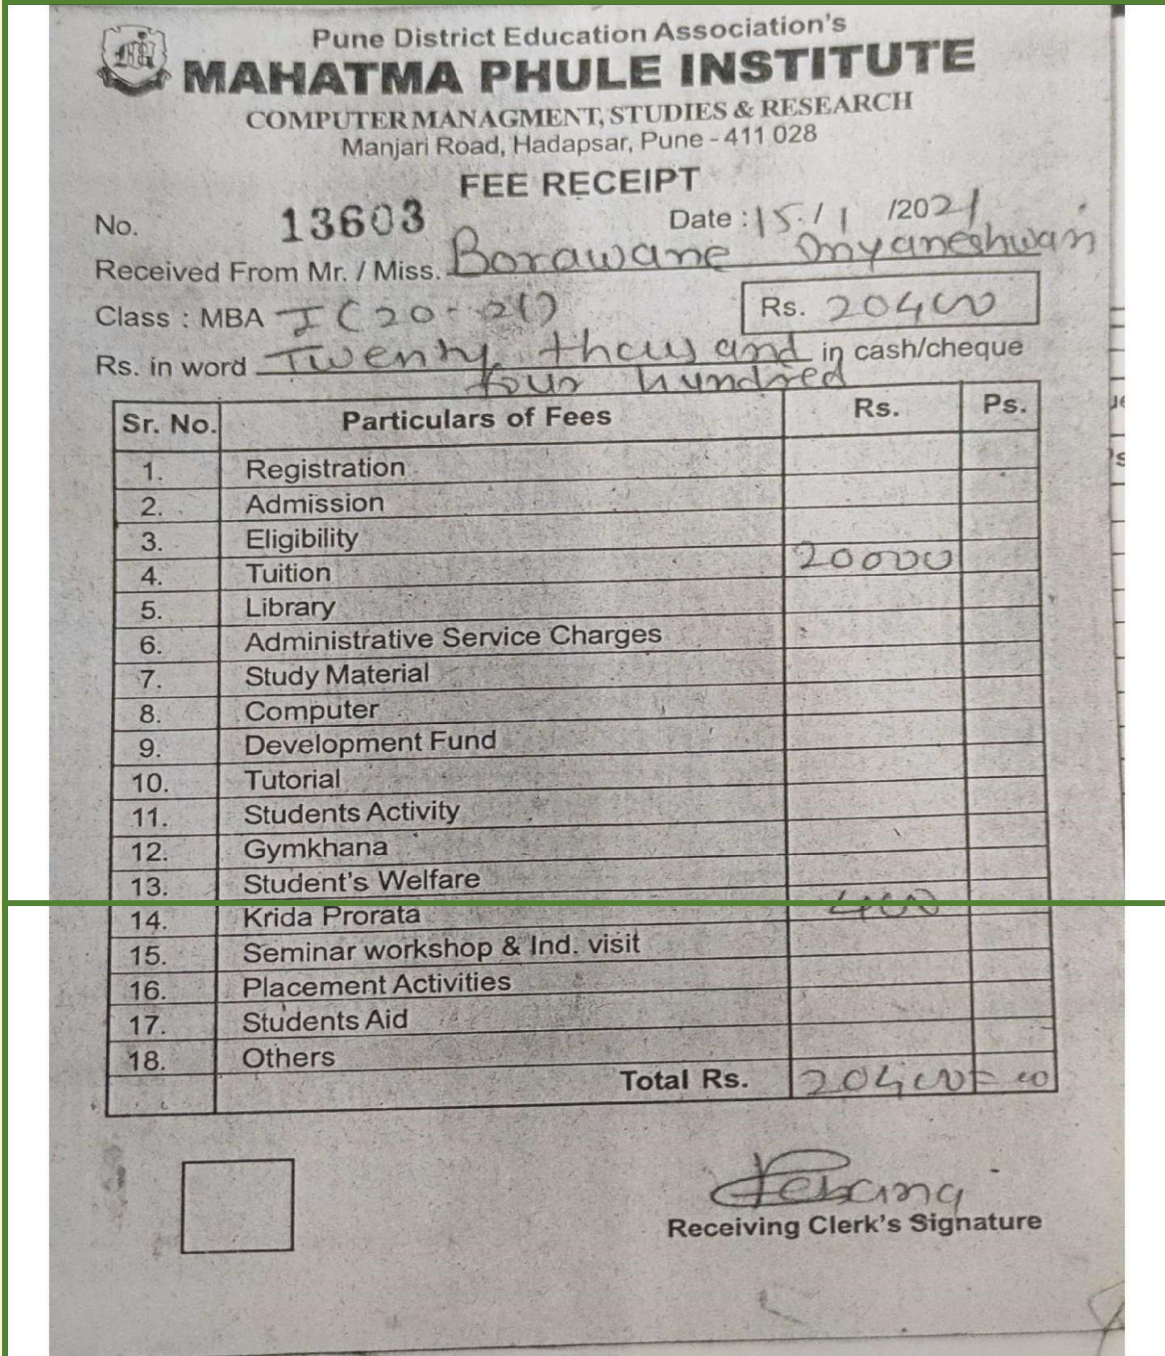 Pune District Education Association's
MAHATMA PHULE INSTITUTE
COMPUTER MANAGMENT, STUDIES & RESEARCH
Manjari Road, Hadapsar, Pune - 411 028
FEE RECEIPT
No. 13603 Date : 15/1/2021
Received From Mr. / Miss. Borawane Dnyaneshwari
Class : MBA I (20-21) Rs. 20400
Rs. in word Twenty thousand in cash/cheque
four hundred
Sr. No. Particulars of Fees Rs. Ps.
1. Registration
2. Admission
3. Eligibility
4. Tuition 20000
5. Library
6. Administrative Service Charges
7. Study Material
8. Computer
9. Development Fund
10. Tutorial
11. Students Activity
12. Gymkhana
13. Student's Welfare
14. Krida Prorata 400
15. Seminar workshop & Ind. visit
16. Placement Activities
17. Students Aid
18. Others
Total Rs. 20400=00
Receiving Clerk's Signature